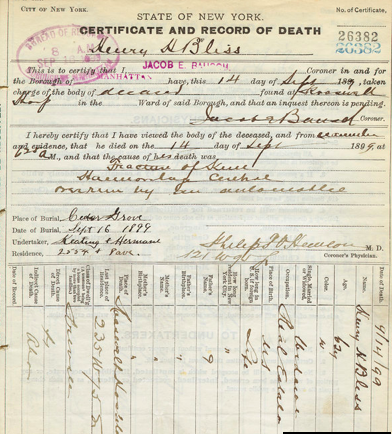 CITY OF NEW YORK.
No. of Certificate,
STATE OF NEW YORK.
CERTIFICATE AND RECORD OF DEATH
26382
26382
Henry H Bliss
This is to certify that I, JACOB E. BAUSCH Coroner in and for
the Borough of MANHATTAN have, this 14 day of Sept 1899, taken
charge of the body of deceased found at Roosevelt
Hosp in the Ward of said Borough, and that an inquest thereon is pending.
Jacob E Bausch Coroner.
I hereby certify that I have viewed the body of the deceased, and from
and evidence, that he died on the 14 day of Sept 1899, at
M., and that the cause of his death was
Fracture of
overrun by an automobile
Place of Burial, Cedar Grove
Date of Burial, Sept 16 1899
Undertaker, Heating & Hermann
Residence,
Philip F. O. M. D.
Coroner's Physician.
9/14/99
Name, Henry H Bliss
Age,
Color, W
Single, Married or Widowed,
Occupation, Real Estate
Place of Birth, U S
How long in U.S. if foreign born, Life
How long resident here, "
Father's Name, ?
Father's Birthplace, "
Mother's Name, "
Mother's Birthplace, "
Place of Death, Roosevelt Hospital
Last place of Residence, 235 W 75
Direct Cause of Death,
Indirect Cause of Death,
Date of Record,